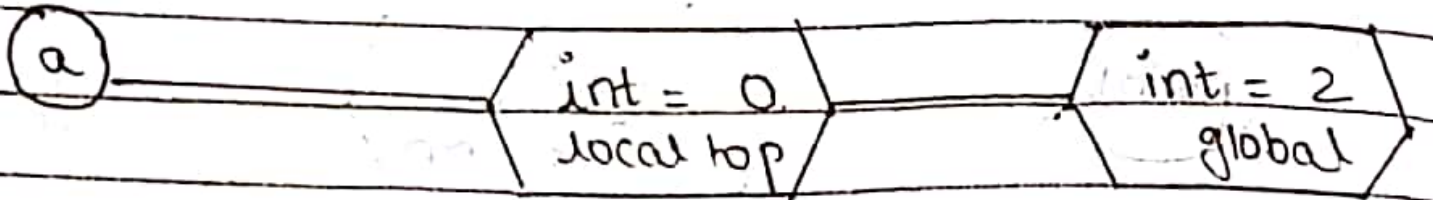 a
int = 0
local top
int = 2
global